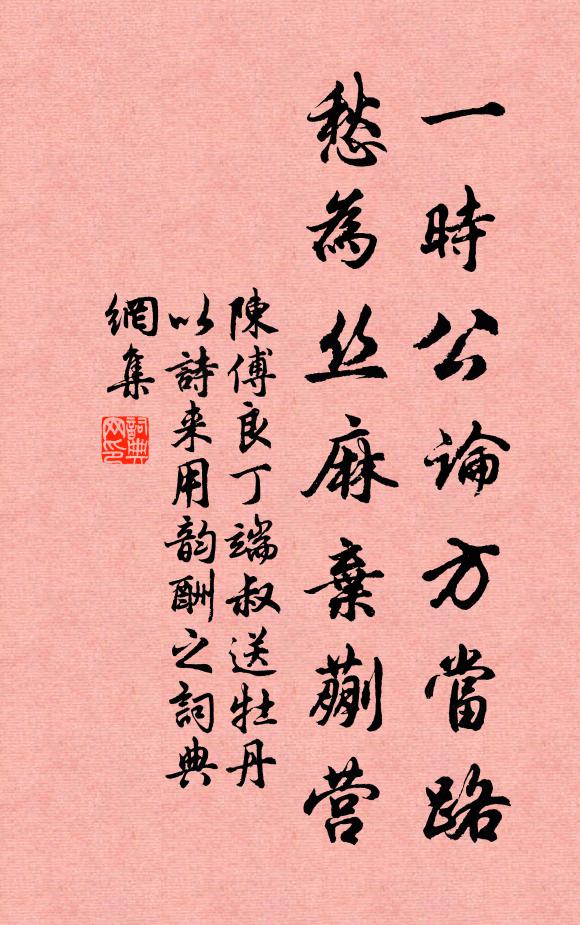 一時公論方當路
愁為丝麻棄蒯营
陳傅良丁端叔送牡丹
以詩来用韵酬之詞典
網集
詞典
网印